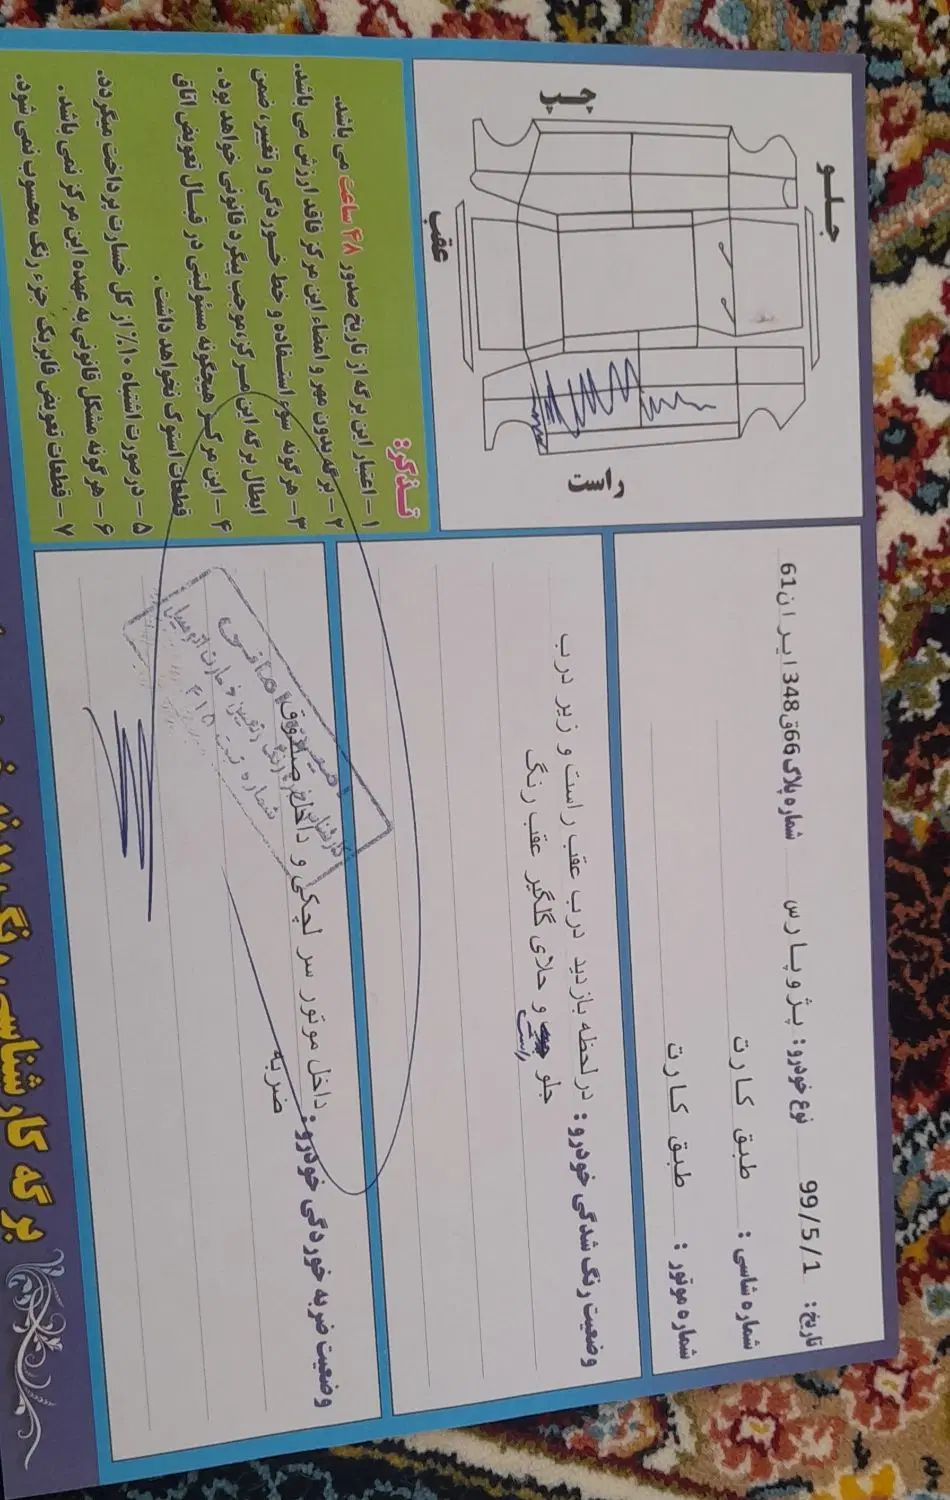 تاریخ: 99/5/1 نوع خودرو: پژو پارس شماره پلاک 66ق348 ایران61
شماره شاسی: طبق کارت
شماره موتور: طبق کارت
وضعیت رنگ شدگی خودرو: در لحظه بازدید درب عقب راست و زیر درب
جلو راست و حلای گلگیر عقب رنگ
وضعیت ضربه خوردگی خودرو: داخل موتور سر لچکی و داخل صندوق
ضربه
جلو
چپ
عقب
راست
تذکر:
۱ – اعتبار این برگه از تاریخ صدور ۴۸ ساعت می باشد.
۲ – برگه بدون مهر و امضاء این مرکز فاقد ارزش می باشد.
۳ – هرگونه سوء استفاده و خط خوردگی و تغییر، ضمن
ابطال برگه این مرکز موجب پیگرد قانونی خواهد بود.
۴ – این مرکز هیچگونه مسئولیتی در قبال تعویض اتاق
قطعات استوک نخواهد داشت.
۵ – در صورت اشتباه ۱۰٪ از کل خسارت پرداخت میگردد.
۶ – هرگونه مشکل قانونی به عهده این مرکز نمی باشد.
۷ – قطعات تعویض فابریک جزء رنگ محسوب نمی شود.
برگه کارشناسی رنگ بدنه